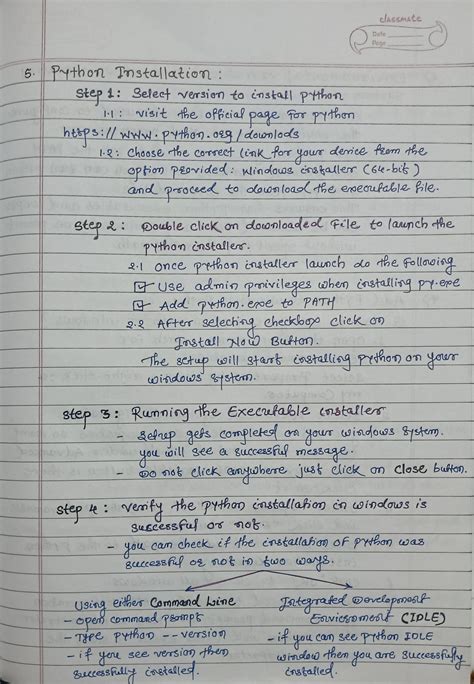 classmate
Date
Page
5. Python Installation :
Step 1 : Select version to install python
1.1 : visit the official page for python
https://www.python.org/downlods
1.2 : Choose the correct link for your device from the
option provided : windows installer (64-bit)
and proceed to download the executable file.
Step 2 : Double click on downloaded file to launch the
python installer.
2.1 once python installer launch do the following
☑ Use admin privileges when installing py.exe
☑ Add python.exe to PATH
2.2 After selecting checkbox click on
Install Now Button.
The setup will start installing python on your
windows system.
Step 3 : Running the Executable installer
- Setup gets completed on your windows system.
you will see a successful message.
- Do not click anywhere just click on close button.
Step 4 : verify the python installation in windows is
successful or not.
- you can check if the installation of python was
successful or not in two ways.
Using either Command Line
- open command prompt
- Type python --version
- if you see version then
successfully installed.
Integrated Development
Environment (IDLE)
- if you can see python IDLE
window then you are successfully
installed.